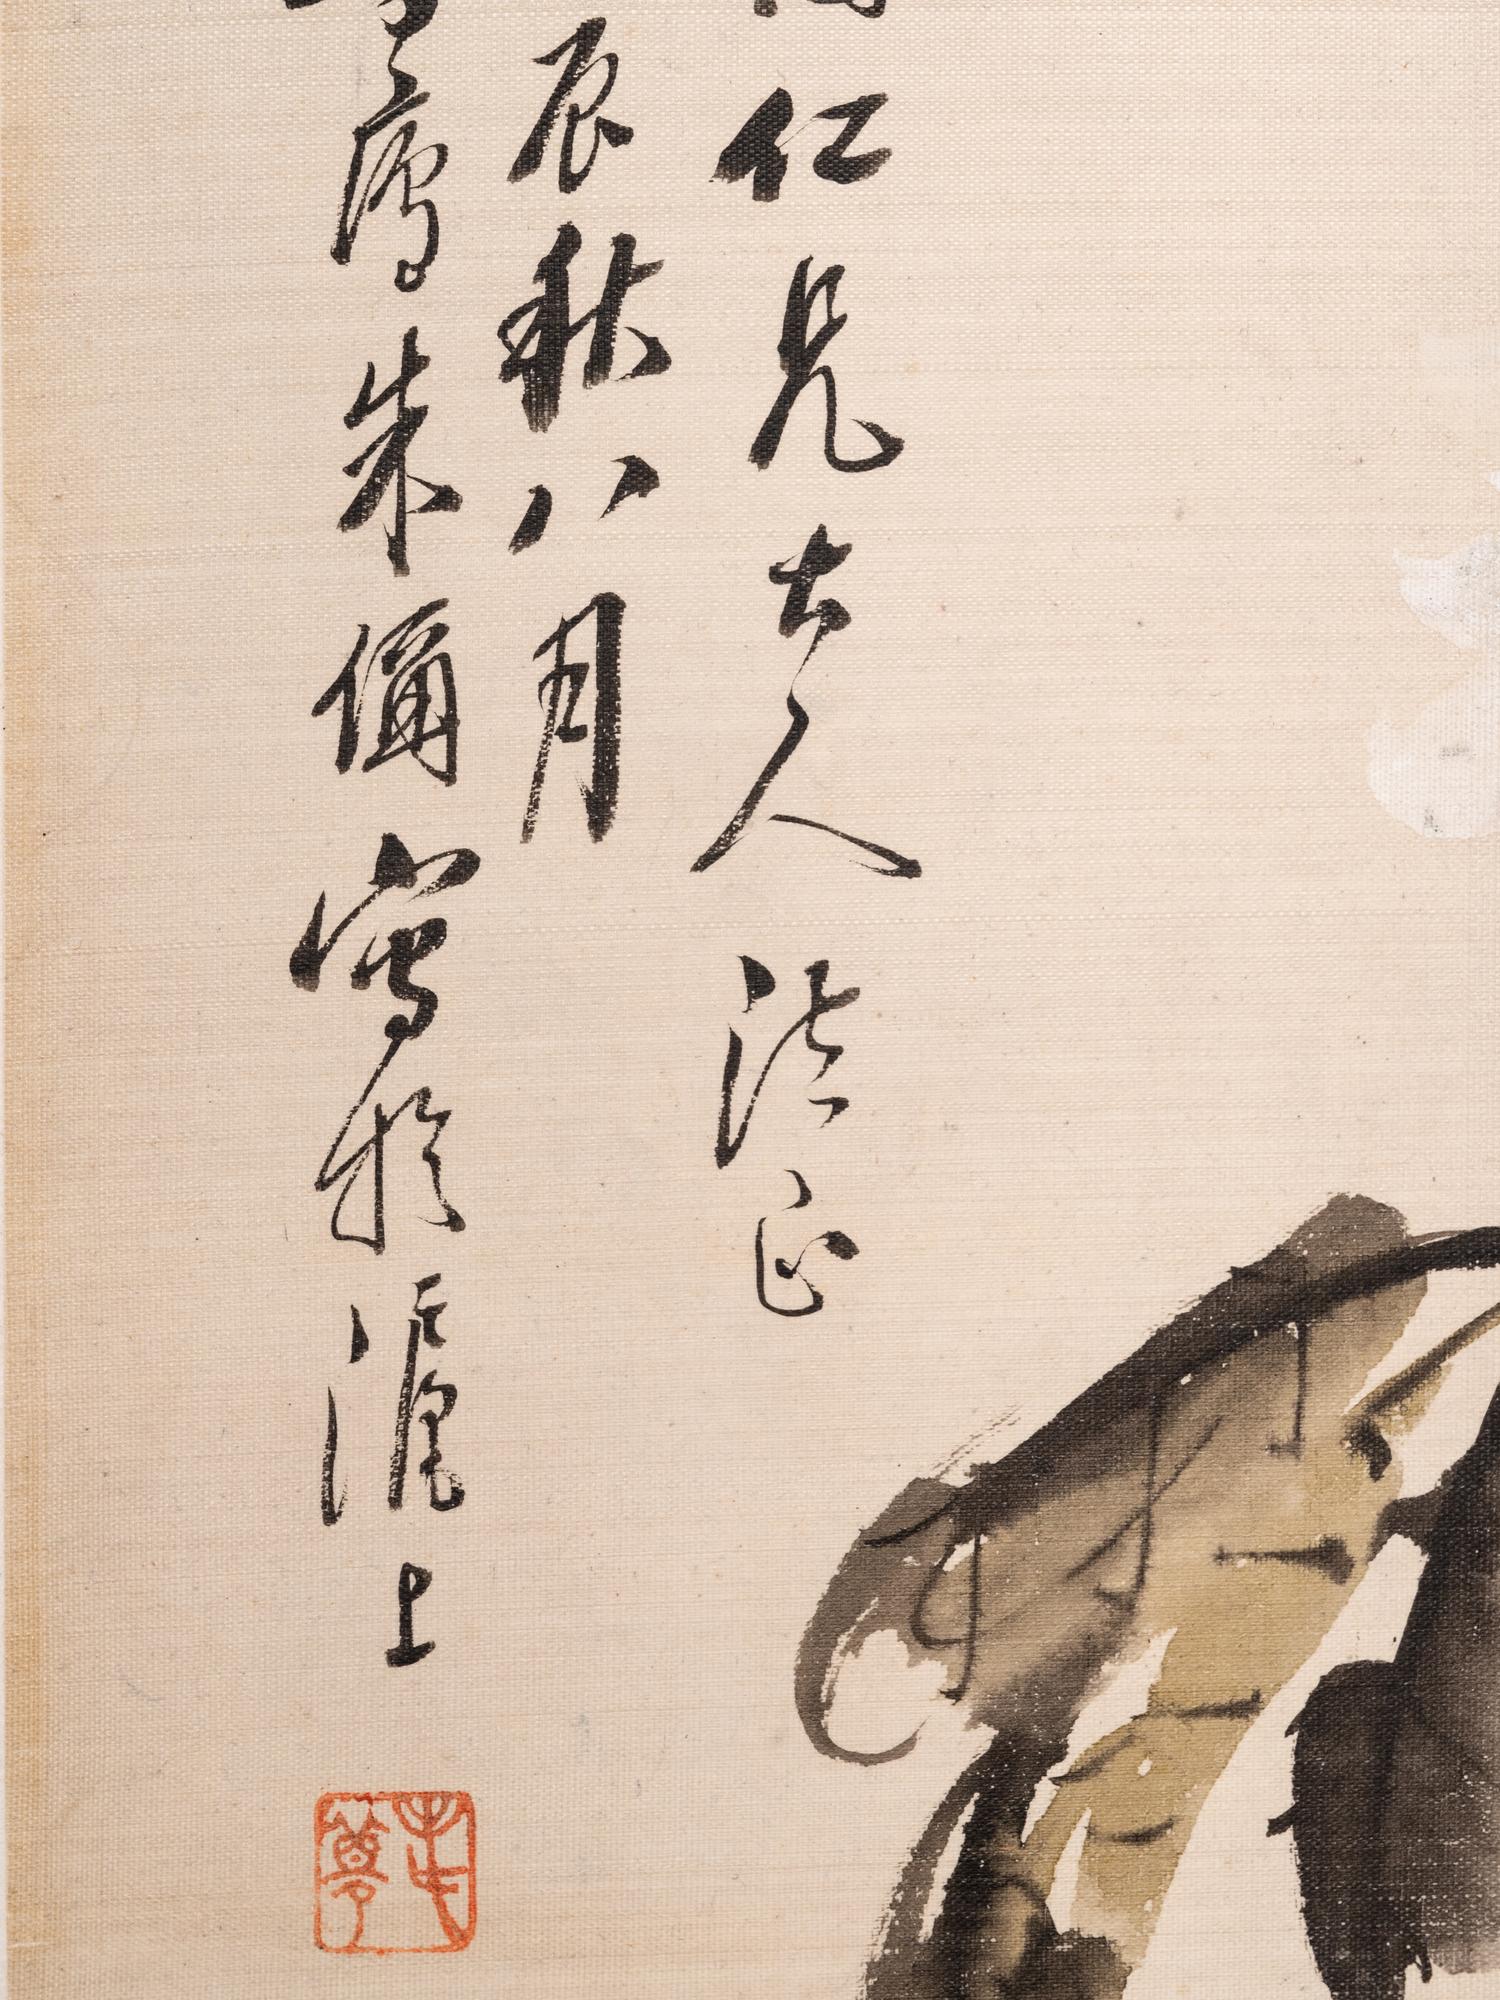 仁兄大人法正
辰秋八月
廬朱偁寫於滬上